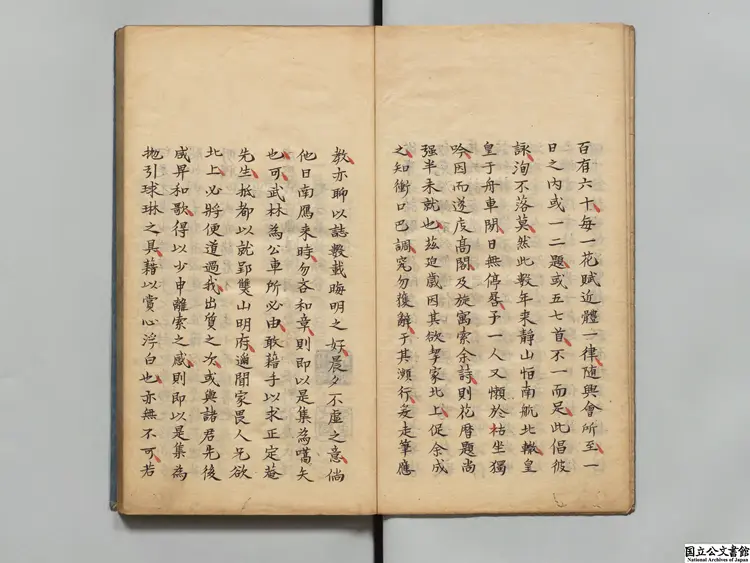 百有六十每一花賦近體一律隨興會所至一
日之內或一二題或五七首不一而足此倡彼
詠洵不落莫然此數年來靜山恒南航北轍皇
皇于舟車間日無停晷予一人又懶於枯坐獨
吟因而遂庋高閣及旋寓索余詩則花曆題尚
强半未就也茲迫歲因其欲挈家北上促余成
之知衝口巴調究勿獲辭于其瀕行亟走筆應
教亦聊以誌數載晦明之好晨夕不虛之意倘
他日南鴈來時勿吝和章則即以是集為嚆矢
也可武林為公車所必由敢藉手以求正定菴
先生抵都以就郢雙山明府邇聞家畏人兄欲
北上必將便道過我出質之次或與諸君先後
咸昇和歌得以少申離索之感則即以是集為
拋引球琳之具藉以賞心浮白也亦無不可若
国立公文書館
National Archives of Japan